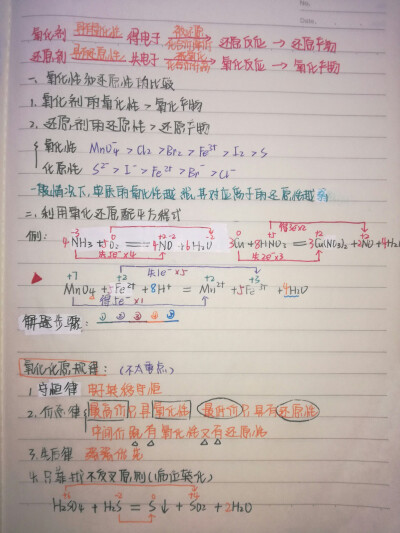 No.
Date.
氧化剂 具有氧化性 得电子 被还原 化合价降低 → 还原反应 → 还原产物
还原剂 具有还原性 失电子 被氧化 化合价升高 → 氧化反应 → 氧化产物
一、氧化性和还原性的比较
1. 氧化剂的氧化性 > 氧化产物
2. 还原剂的还原性 > 还原产物
氧化性 MnO4⁻ > Cl2 > Br2 > Fe³⁺ > I2 > S
还原性 S²⁻ > I⁻ > Fe²⁺ > Br⁻ > Cl⁻
一般情况下,单质的氧化性越强,其对应离子的还原性越弱
二、利用氧化还原配平方程式
例: 4NH3 + 5O2 = 4NO + 6H2O 3Cu + 8HNO3 = 3Cu(NO3)2 + 2NO + 4H2O
失5e⁻×4
失1e⁻×5
MnO4⁻ + 5Fe²⁺ + 8H⁺ = Mn²⁺ + 5Fe³⁺ + 4H2O
得5e⁻×1
解题步骤: ① ② ③ ④ ⑤
氧化还原规律: (不太重点)
1. 守恒律 电子转移守恒
2. 价态律 最高价只具氧化性 最低价只具有还原性
中间价既有氧化性又有还原性
3. 先后律 强强优先
4. 只靠拢不交叉原则(临近转化)
H2SO4 + H2S = S↓ + SO2 + 2H2O